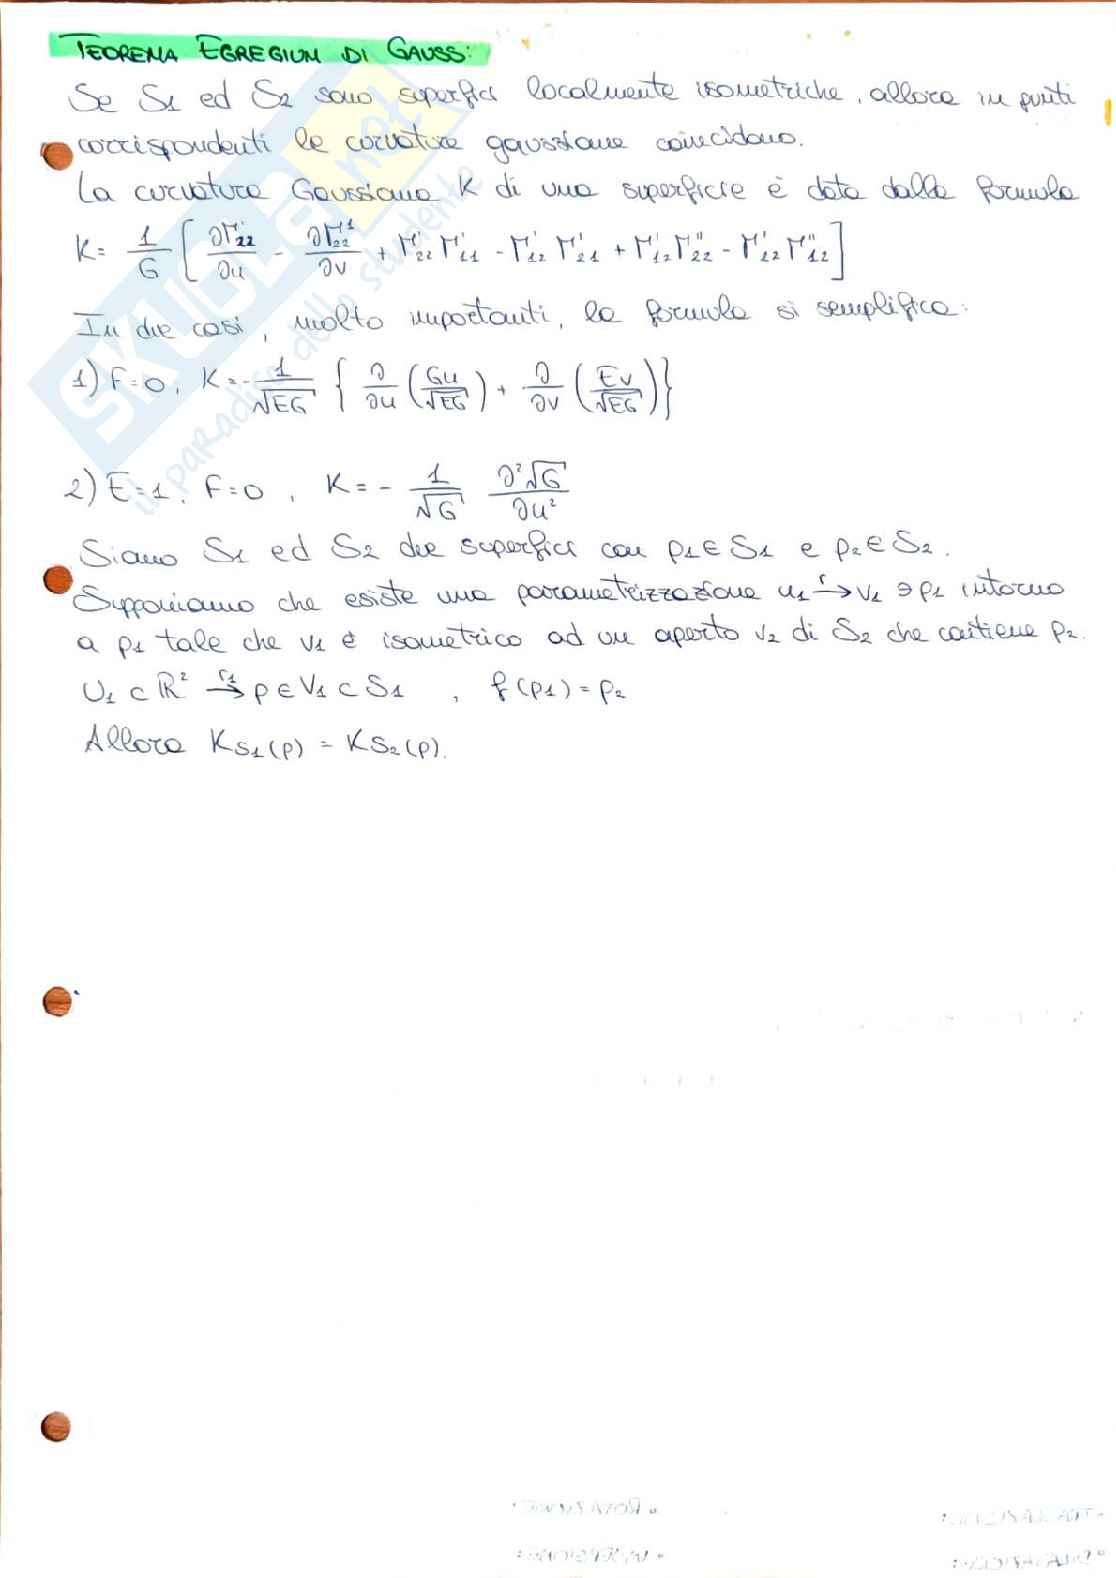 TEOREMA EGREGIUM DI GAUSS:
Se S1 ed S2 sono superfici localmente isometriche, allora in punti
corrispondenti le curvature gaussiane coincidono.
La curvatura Gaussiana K di una superficie è data dalla formula
K = 1/G [ ∂Γ'22/∂u - ∂Γ¹22/∂v + Γ'22 Γ'11 - Γ'12 Γ'21 + Γ'12 Γ"22 - Γ'22 Γ"12 ]
In due casi, molto importanti, la formula si semplifica:
1) F=0, K = - 1/√EG { ∂/∂u (Gu/√EG) + ∂/∂v (Ev/√EG) }
2) E=1, F=0, K = - 1/√G ∂²√G/∂u²
Siano S1 ed S2 due superfici con p1 ∈ S1 e p2 ∈ S2.
Supponiamo che esiste una parametrizzazione u1 r→ v1 ∋ p1 intorno
a p1 tale che v1 è isometrico ad un aperto v2 di S2 che contiene p2.
U1 ⊂ ℝ² r1→ p ∈ V1 ⊂ S1 , f(p1) = p2
Allora KS1(p) = KS2(p).
SKUOLA.net
il paradiso dello studente